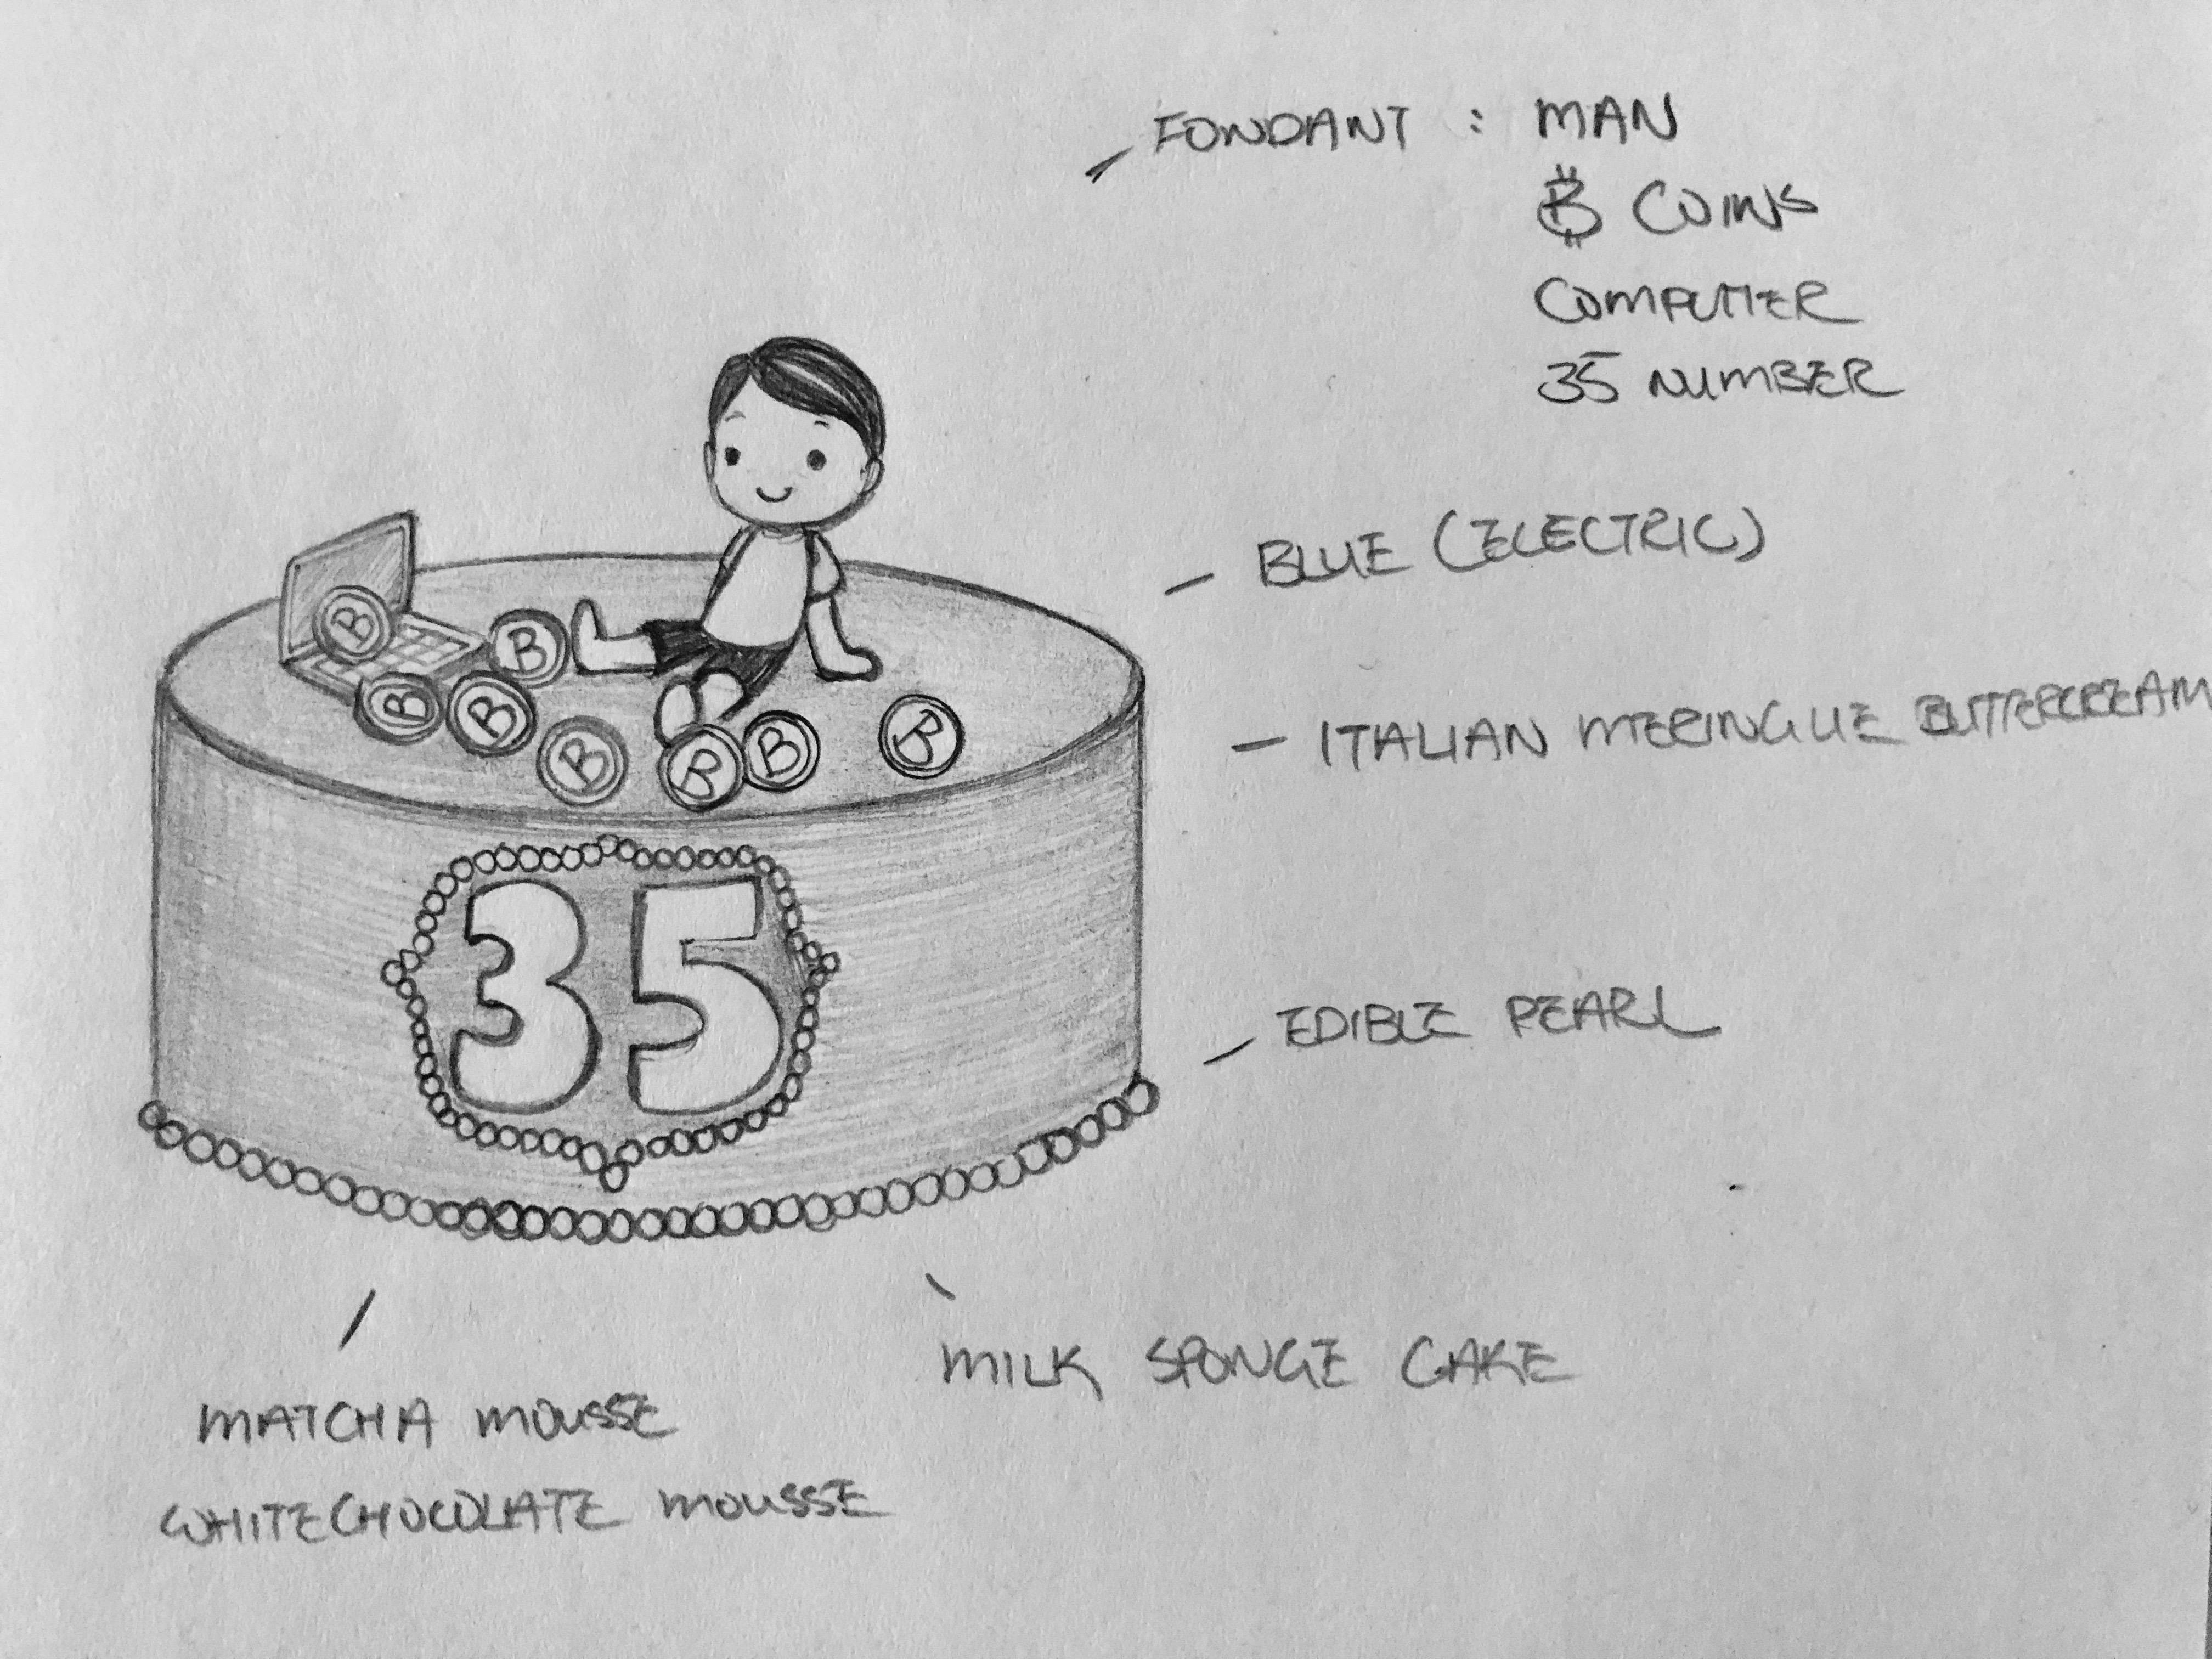 FONDANT : MAN
₿ COINS
COMPUTER
35 NUMBER
BLUE (ELECTRIC)
ITALIAN MERINGUE BUTTERCREAM
EDIBLE PEARL
B
B
B
B
B
B
B
B
35
MILK SPONGE CAKE
MATCHA MOUSSE
WHITECHOCOLATE MOUSSE